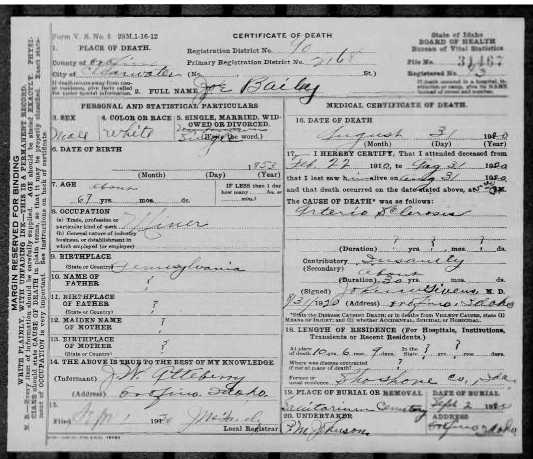 Form V. S. No. 1 20M.1-16-12
CERTIFICATE OF DEATH
State of Idaho
BOARD OF HEALTH
Bureau of Vital Statistics
1. PLACE OF DEATH.
Registration District No. 90
County of
Primary Registration District No. 2168
File No. 31467
City of (No. St.)
Registered No. 3
2. FULL NAME Joe Bailey
PERSONAL AND STATISTICAL PARTICULARS
3. SEX
4. COLOR OR RACE
5. SINGLE, MARRIED, WIDOWED OR DIVORCED.
Male White Single (Write the word.)
6. DATE OF BIRTH
1853
(Month) (Day) (Year)
7. AGE about
IF LESS than 1 day
how many hrs. or
min.?
67 yrs. mos. ds.
8. OCCUPATION
(a) Trade, profession or
particular kind of work Miner
(b) General nature of industry
business, or establishment in
which employed (or employer)
9. BIRTHPLACE
(State or Country) Pennsylvania
10. NAME OF
FATHER ?
11. BIRTHPLACE
OF FATHER ?
(State or Country)
12. MAIDEN NAME
OF MOTHER ?
13. BIRTHPLACE
OF MOTHER ?
(State or Country)
14. THE ABOVE IS TRUE TO THE BEST OF MY KNOWLEDGE
(Informant) J. W.
(Address) Orofino, Idaho.
15.
Filed Sept 1 1920
Local Registrar
MEDICAL CERTIFICATE OF DEATH.
16. DATE OF DEATH
August 31 1920
(Month) (Day) (Year)
17. I HEREBY CERTIFY, That I attended deceased from
Feb. 22 1910, to Aug 31 1920
that I last saw him alive on Aug 31 1920
and that death occurred on the date stated above, at M.
The CAUSE OF DEATH* was as follows:
Arterio Sclerosis
(Duration) ? yrs. ? mos. ? ds.
Contributory Insanity
(Secondary) about
(Duration) 30 yrs. mos. ds.
(Signed) John W. Givens M. D.
8/31 1920 (Address) Orofino, Idaho
*State the DISEASE CAUSING DEATH; or in deaths from VIOLENT CAUSES, state (1)
MEANS OF INJURY; and (2) whether ACCIDENTAL, SUICIDAL, OR HOMICIDAL.
18. LENGTH OF RESIDENCE (For Hospitals, Institutions,
Transients or Recent Residents.)
At place In the
of death 10 yrs. 6 mos. 9 days. State yrs. mos. ds.
Where was disease contracted
if not at place of death? ?
Former or
usual residence Shoshone Co., Ida.
19. PLACE OF BURIAL OR REMOVAL
DATE OF BURIAL
Sanitarium Cemetery Sept. 2 1920
20. UNDERTAKER
ADDRESS
Johnson Orofino Idaho
MARGIN RESERVED FOR BINDING
WRITE PLAINLY, WITH UNFADING INK—THIS IS A PERMANENT RECORD.